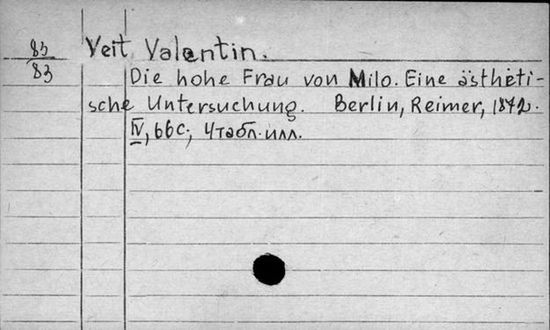 83 Veit Valentin.
83 Die hohe Frau von Milo. Eine ästheti-
sche Untersuchung. Berlin, Reimer, 1872.
IV, 66 с., 4 табл. илл.